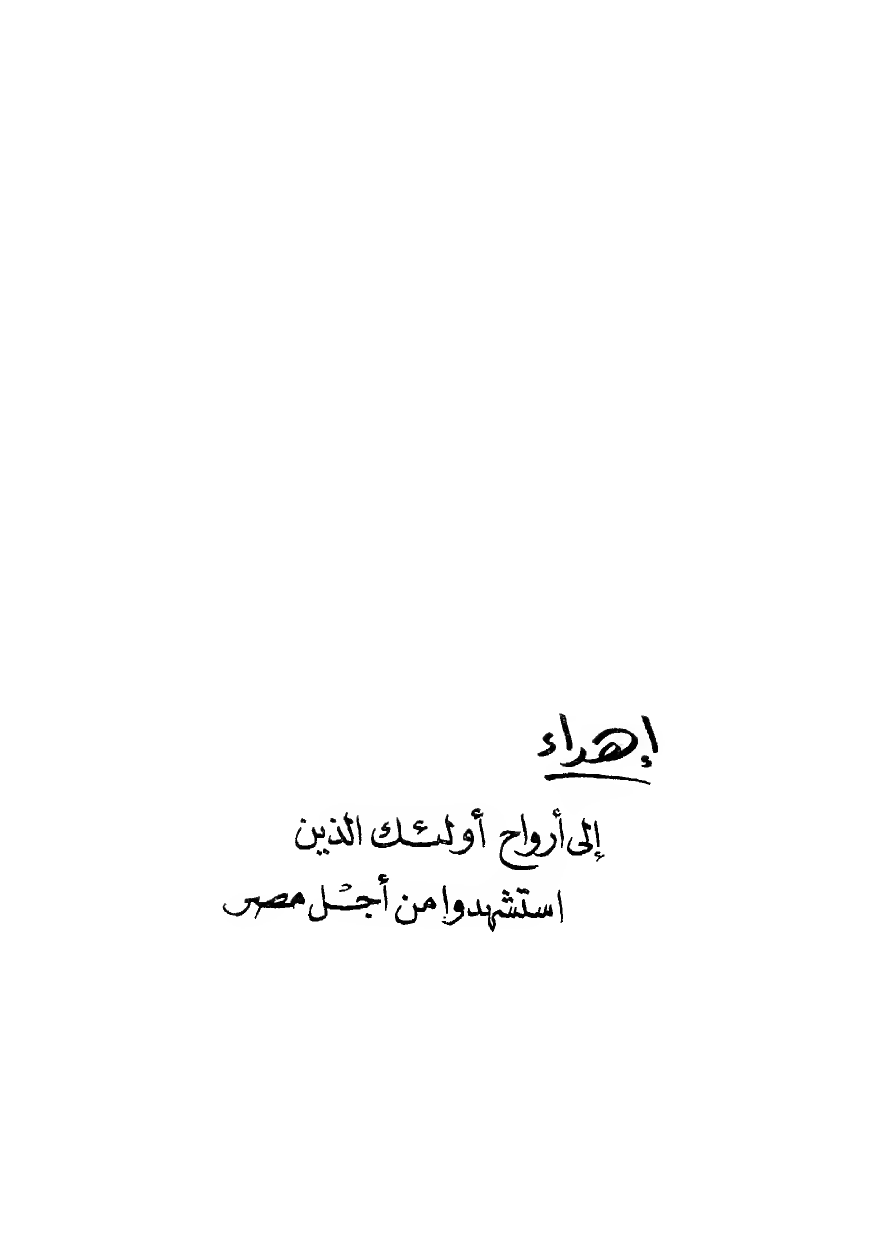 إهداء
إلى أرواح أولئك الذين
استشهدوا من أجْل مصر